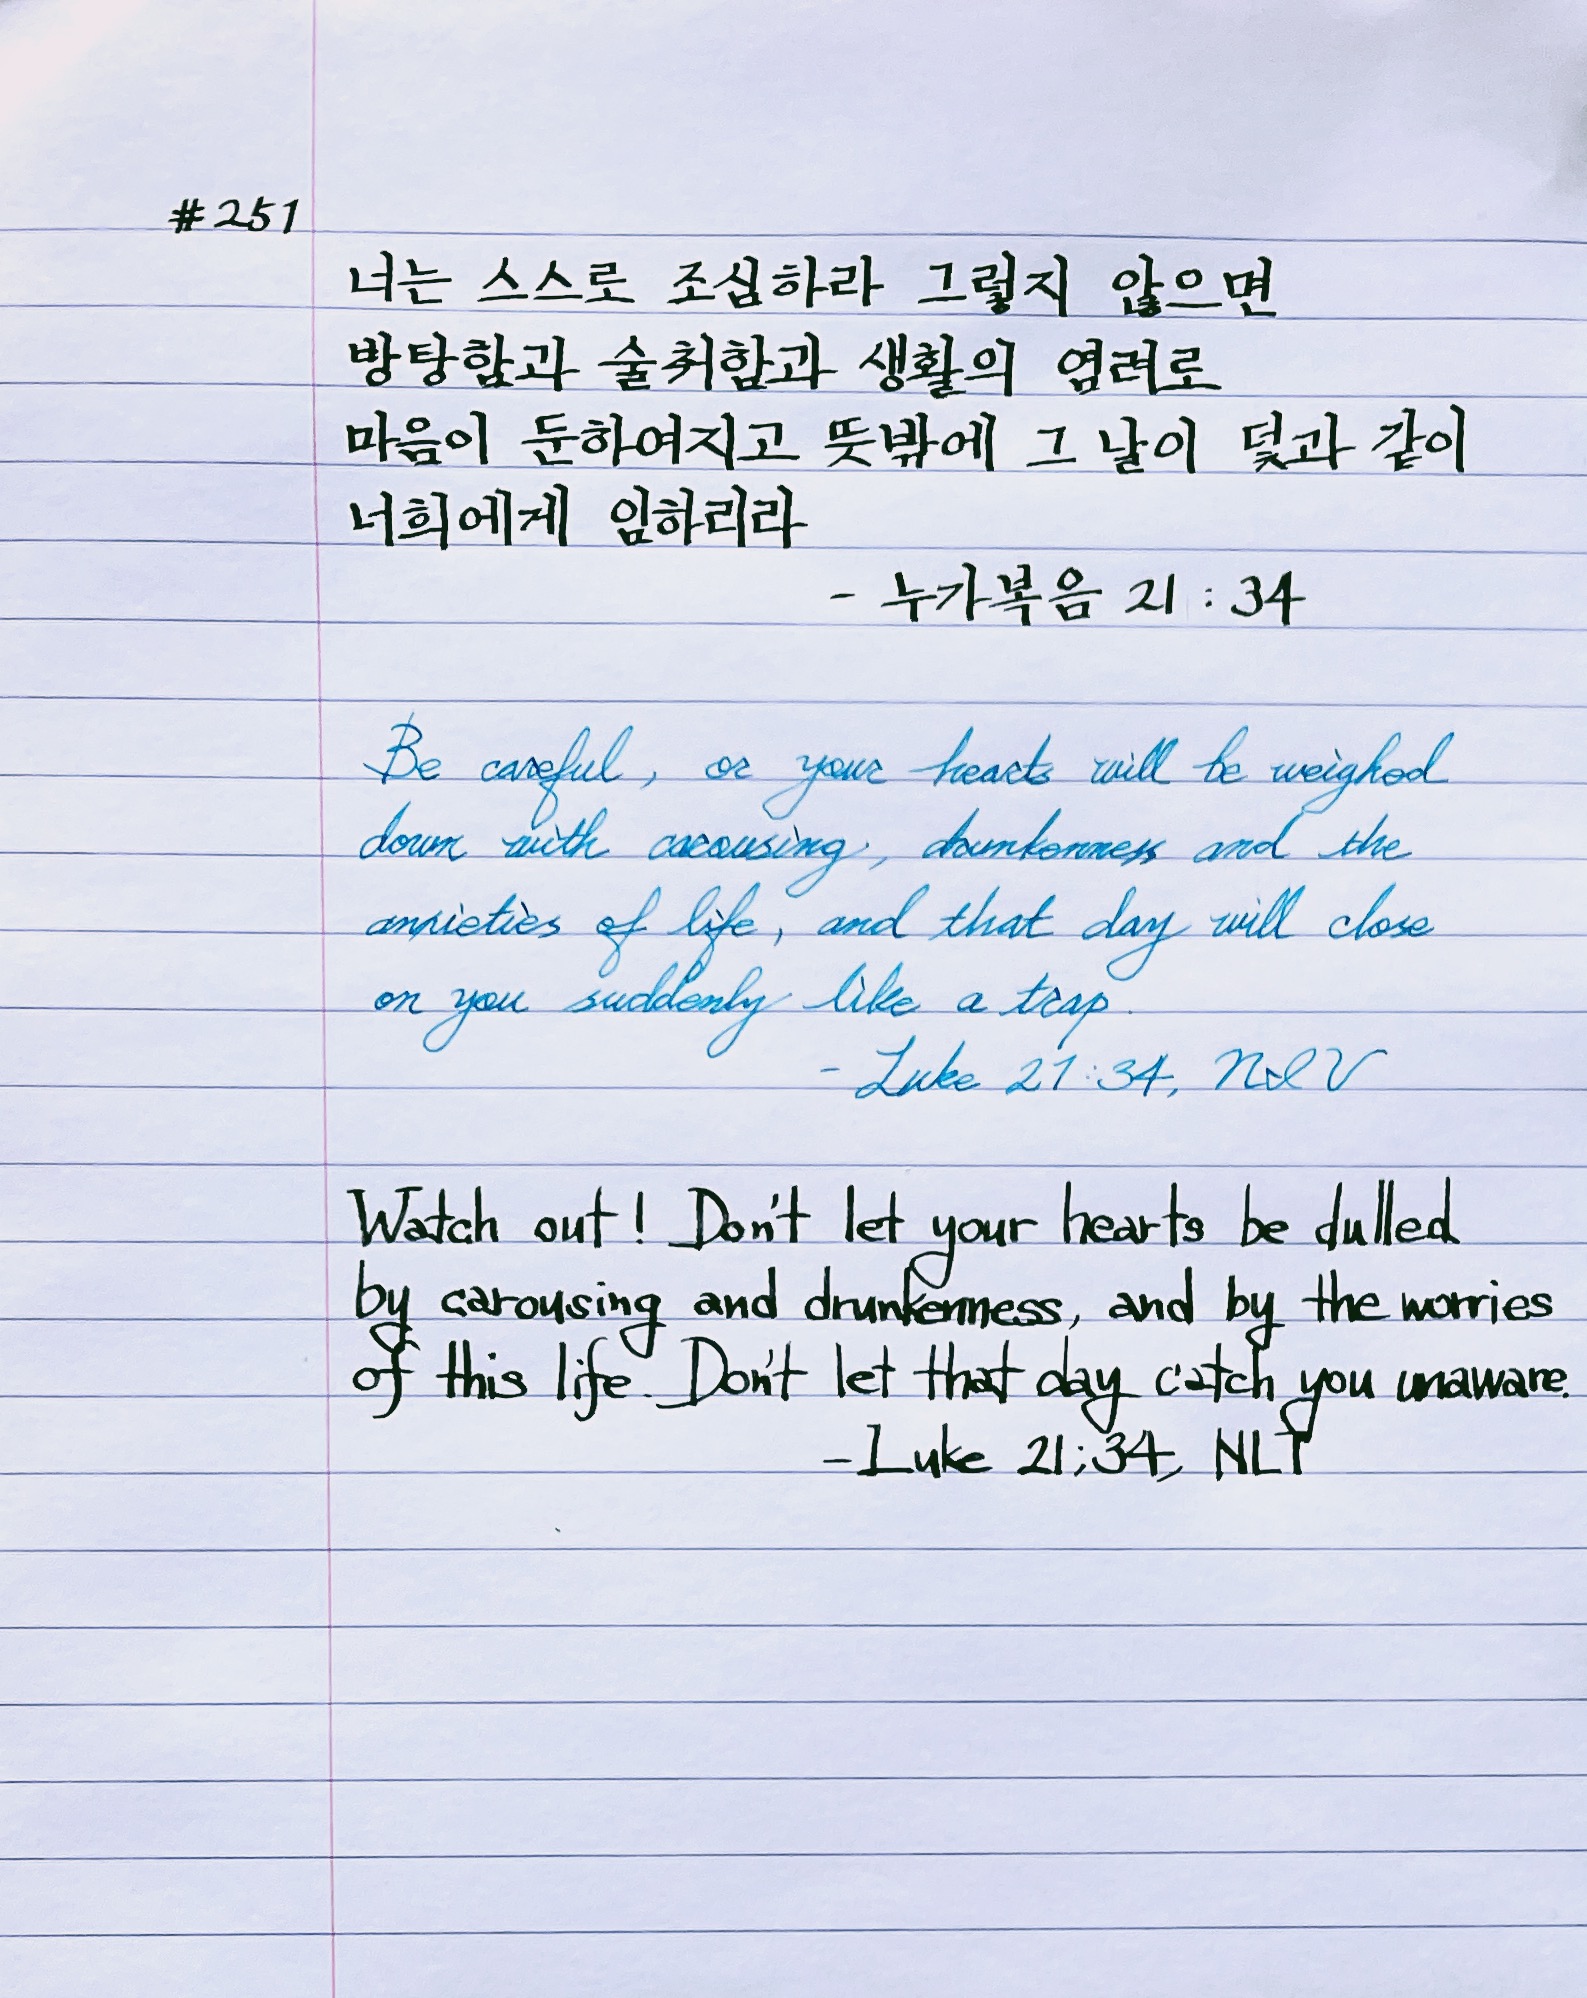 #251
너는 스스로 조심하라 그렇지 않으면
방탕함과 술취함과 생활의 염려로
마음이 둔하여지고 뜻밖에 그 날이 덫과 같이
너희에게 임하리라
- 누가복음 21 : 34
Be careful, or your hearts will be weighed
down with carousing, drunkenness and the
anxieties of life, and that day will close
on you suddenly like a trap.
- Luke 21:34, NIV
Watch out! Don't let your hearts be dulled
by carousing and drunkenness, and by the worries
of this life. Don't let that day catch you unaware.
- Luke 21;34, NLT